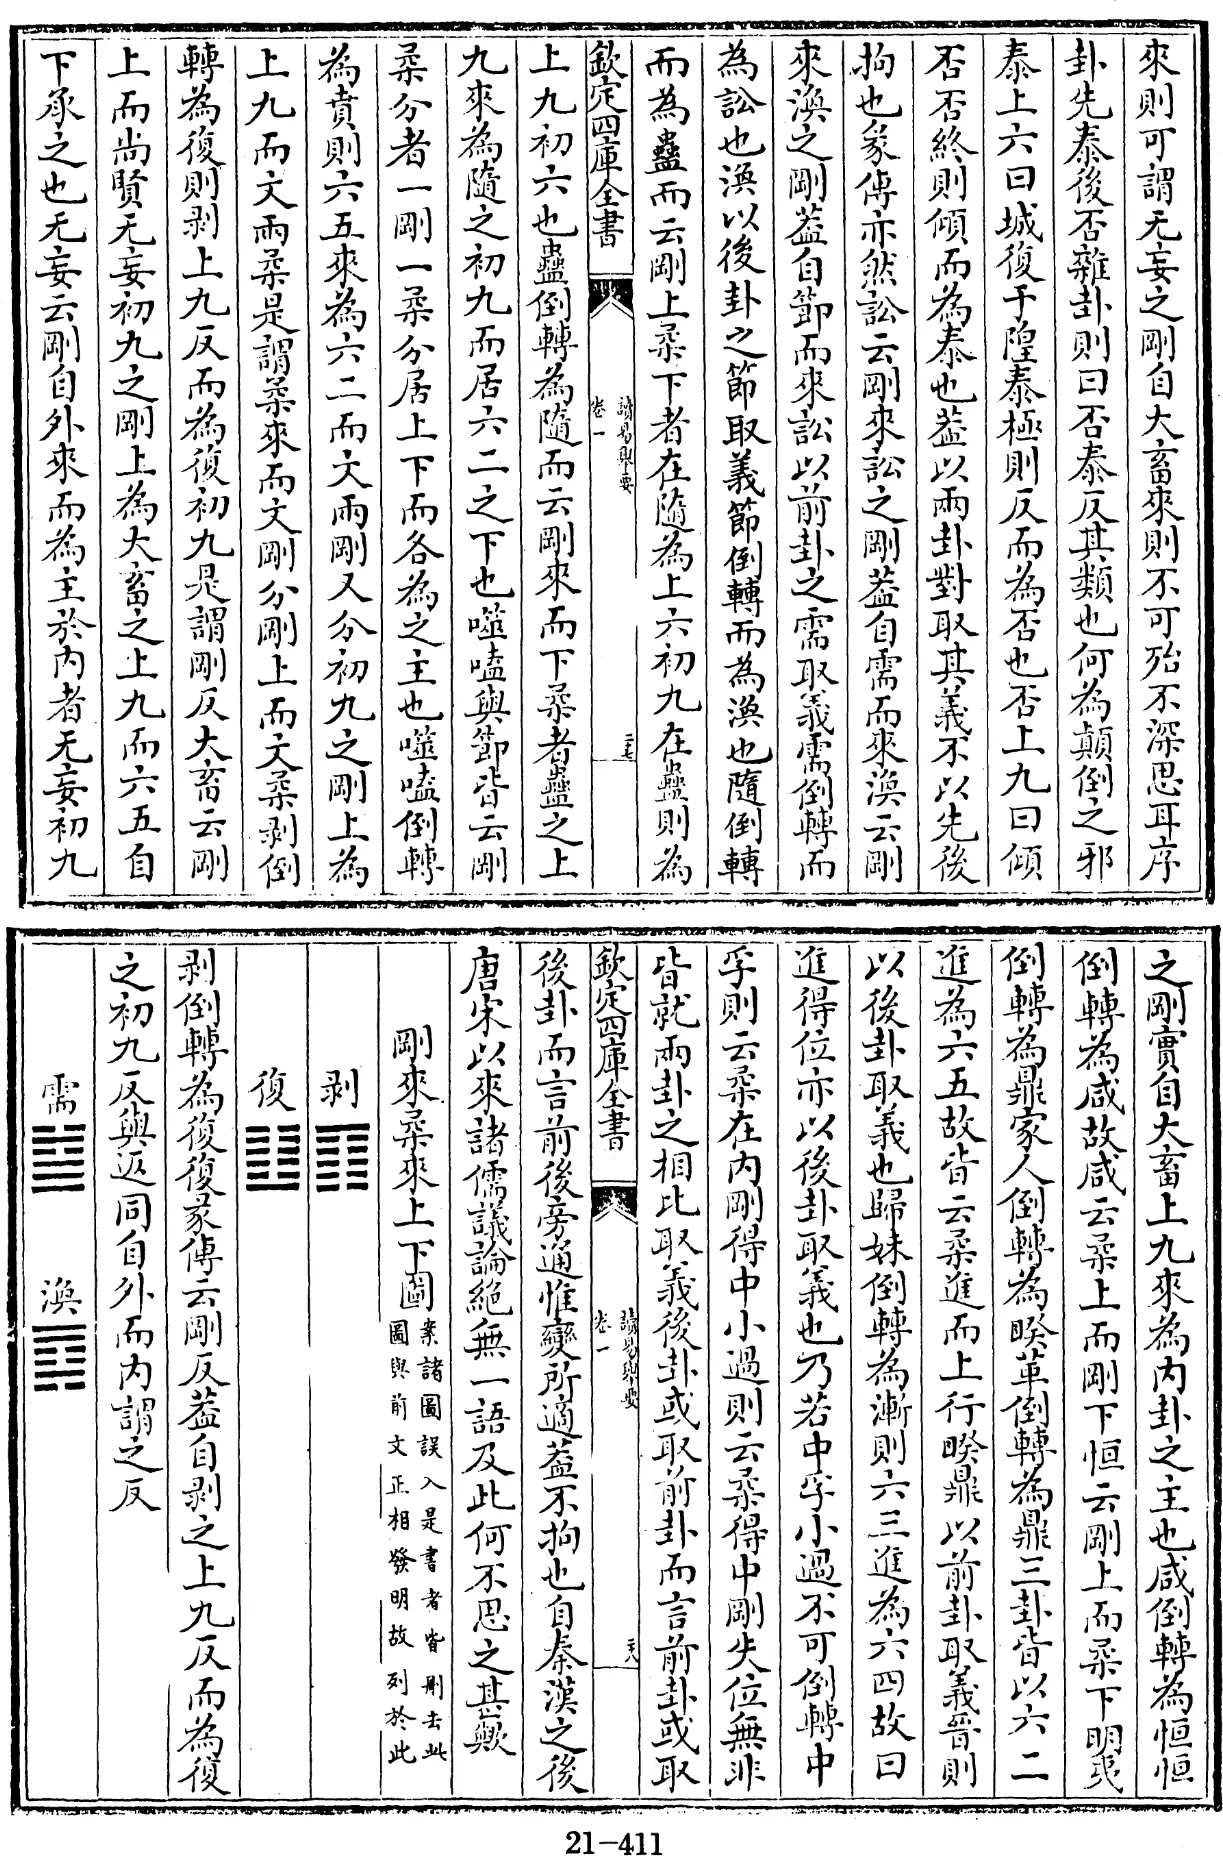 來則可謂无妄之剛自大畜來則不可殆不深思耳序
卦先泰後否雜卦則曰否泰反其類也何為顛倒之邪
泰上六曰城復于隍泰極則反而為否也否上九曰傾
否否終則傾而為泰也葢以兩卦對取其義不以先後
拘也彖傳亦然訟云剛來訟之剛葢自需而來渙云剛
來渙之剛葢自節而來訟以前卦之需取義需倒轉而
為訟也渙以後卦之節取義節倒轉而為渙也隨倒轉
而為蠱而云剛上柔下者在隨為上六初九在蠱則為
欽定四庫全書
讀易舉要
卷一
二七
上九初六也蠱倒轉為隨而云剛來而下柔者蠱之上
九來為隨之初九而居六二之下也噬嗑與節皆云剛
柔分者一剛一柔分居上下而各為之主也噬嗑倒轉
為賁則六五來為六二而文兩剛又分初九之剛上為
上九而文兩柔是謂柔來而文剛分剛上而文柔剥倒
轉為復則剥上九反而為復初九是謂剛反大畜云剛
上而尚賢无妄初九之剛上為大畜之上九而六五自
下承之也无妄云剛自外來而為主於内者无妄初九
之剛實自大畜上九來為内卦之主也咸倒轉為恒恒
倒轉為咸故咸云柔上而剛下恒云剛上而柔下明夷
倒轉為晉家人倒轉為睽革倒轉為鼎三卦皆以六二
進為六五故皆云柔進而上行睽鼎以前卦取義晉則
以後卦取義也歸妹倒轉為漸則六三進為六四故曰
進得位亦以後卦取義也乃若中孚小過不可倒轉中
孚則云柔在内剛得中小過則云柔得中剛失位無非
皆就兩卦之相比取義後卦或取前卦而言前卦或取
欽定四庫全書
讀易舉要
卷一
二八
後卦而言前後旁通惟變所適葢不拘也自秦漢之後
唐宋以來諸儒議論絶無一語及此何不思之甚歟
剛來柔來上下圖
案諸圖誤入是書者皆刪去此
圖與前文正相發明故列於此
剥
復
剥倒轉為復復彖傳云剛反葢自剥之上九反而為復
之初九反與返同自外而内謂之反
需 渙
21-411